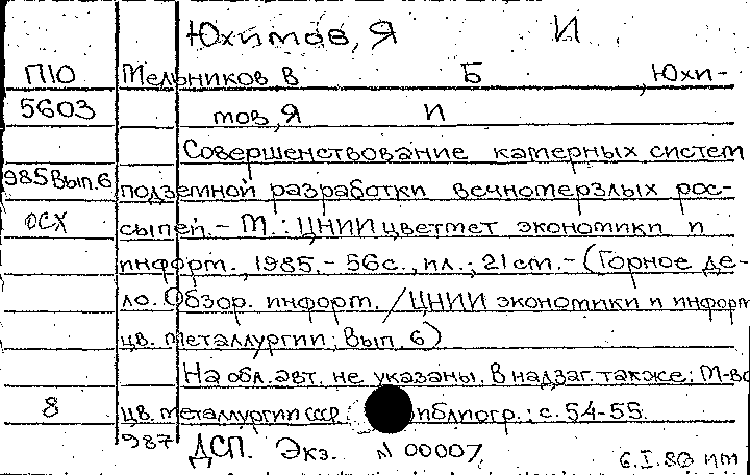 Юхимов, Я И
П10 Мельников В Б , Юхи-
5603 мов, Я И
Совершенствование камерных систем
985 Вып.6 подземной разработки вечномерзлых рос-
ОСХ сыпей. - М.: ЦНИИцветмет экономики и
информ., 1985. - 56с., ил.; 21 см. - (Горное де-
ло. Обзор. информ. / ЦНИИ экономики и информ
цв. металлургии; Вып. 6)
На обл. авт. не указаны. В надзаг. также: М-во
8 цв. металлургии СССР. иблиогр.: с. 54-55
987 ДСП. Экз. N 00007